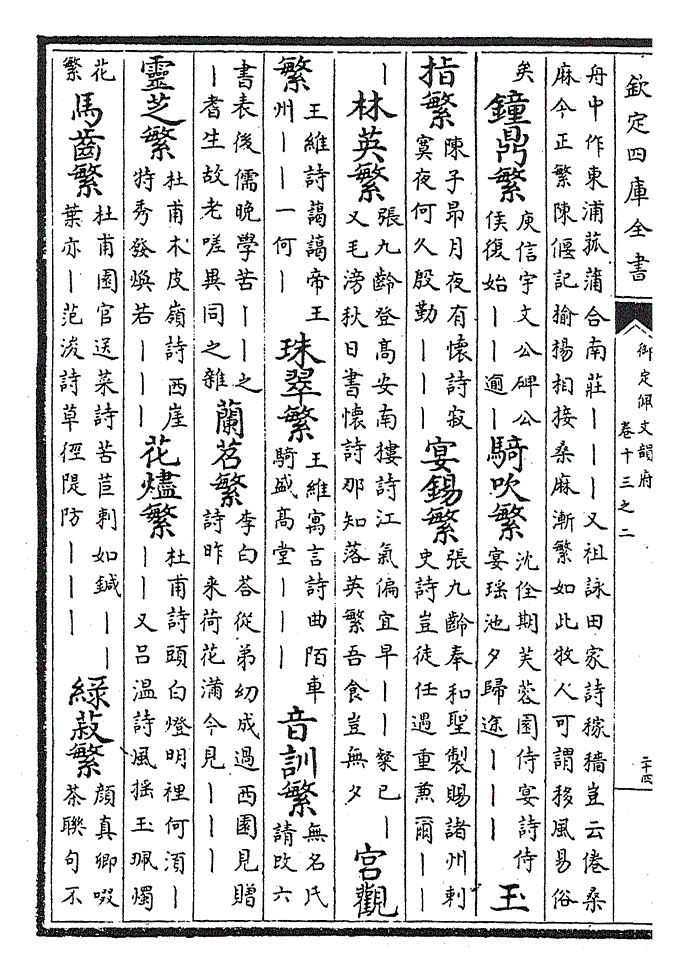 欽定四庫全書
御定佩文韻府
卷十三之二
二十四
舟中作東浦菰蒲合南莊丨丨丨丨又祖詠田家詩稼穡豈云倦桑
麻今正繁陳偃記揄揚相接桑麻漸繁如此牧人可謂移風易俗
矣 鐘鼎繁 庾信宇文公碑公侯復始丨丨逾丨 騎吹繁 沈佺期芙蓉園侍宴詩侍宴瑶池夕歸途丨丨丨 玉
指繁 陳子昂月夜有懷詩寂寞夜何久殷勤丨丨丨 宴錫繁 張九齡奉和聖製賜諸州刺史詩豈徒任遇重兼爾丨丨
丨 林英繁 張九齡登高安南樓詩江氣偏宜早丨丨粲已丨又毛滂秋日書懷詩那知落英繁吾食豈無夕 宮觀
繁 王維詩藹藹帝王州丨丨一何丨 珠翠繁 王維寓言詩曲陌車騎盛高堂丨丨丨 音訓繁 無名氏請改六
書表後儒晚學苦丨丨之丨耆生故老嗟異同之雜 蘭茗繁 李白荅從弟幼成過西園見贈詩昨来荷花滿今見丨丨丨
靈芝繁 杜甫木皮嶺詩西崖特秀發煥若丨丨丨 花燼繁 杜甫詩頭白燈明裡何須丨丨丨又吕溫詩風摇玉珮燭
花繁 馬齒繁 杜甫園官送菜詩苦苣刺如鍼丨丨葉亦丨范浚詩草徑隄防丨丨丨 綠菽繁 顔真卿啜茶聯句不